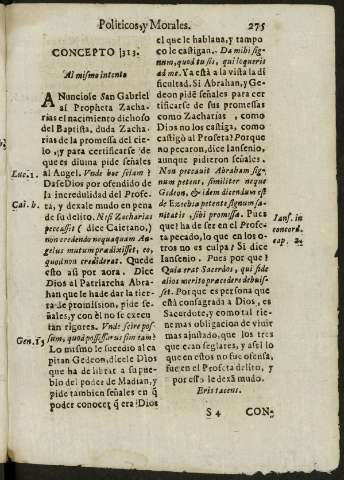 Politicos, y Morales. 275
CONCEPTO 313.
Al mismo intento
ANunciose San Gabriel
al Propheta Zacha-
rias el nacimiento dichoso
del Baptista, duda Zacha-
rias de la promessa del cie-
lo, y para certificarse de
que es divina pide señales
al Angel. Vnde hoc sciam?
Luc. 1.
Dase Dios por ofendido de
la incredulidad del Profe-
Cai. h.
ta, y dexale mudo en pena
de su delito. Nisi Zacharias
peccasset (dice Caietano,)
non credendo nequaquam An-
gelus mutum prædixisset, eo,
quod non crediderat. Quede
esto asi por aora. Dice
Dios al Patriarcha Abra-
han que le hade dar la tier-
ra de promision, pide se-
ñales, y con èl no se execu
tan rigores. Vnde scire pos-
Gen. 15
sum, quod possessurus sim eam?
Lo mismo le sucediò al ca
pitan Gedeon, dicele Dios
que ha de librar a su pue-
blo del poder de Madian, y
pide tambien señales en q̃
poder conocer q̃ era Dios
el que le hablaua, y tampo
co le castigan. Da mihi sig-
num, quod tu sis, qui loqueris
ad me. Ya està a la vista la di
ficultad. Si Abrahan, y Ge-
deon pidẽ señales para cer
tificarse de sus promessas
como Zacharias, como
Dios no los castiga, como
castigò al Profeta? Porque
no pecaron, dice Iansenio,
aunque pidieron señales.
Non peccauit Abraham sig-
num petens, similiter neque
Gedeon, & idem dicendum est
de Ezechia petente signum sa-
nitatis, sibi promissa. Pues
Ians. in
concord.
cap. 2.
que ha de ser en el Profeta
pecado, lo que en los o-
tros no es culpa? Si dice
Iansenio. Pues por que?
Quia erat Sacerdos, qui fide
alios merito præcedere debuis-
set. Porque es persona que
està consagrada a Dios, es
Sacerdote, y como tal tie-
ne mas obligacion de vivir
mas ajustado, que los tres
que eran seglares, y asi lo
que en estos no fue ofensa,
fue en el Profeta delito, y
por esso le dexã mudo.
Eris tacens.
S 4 CON-